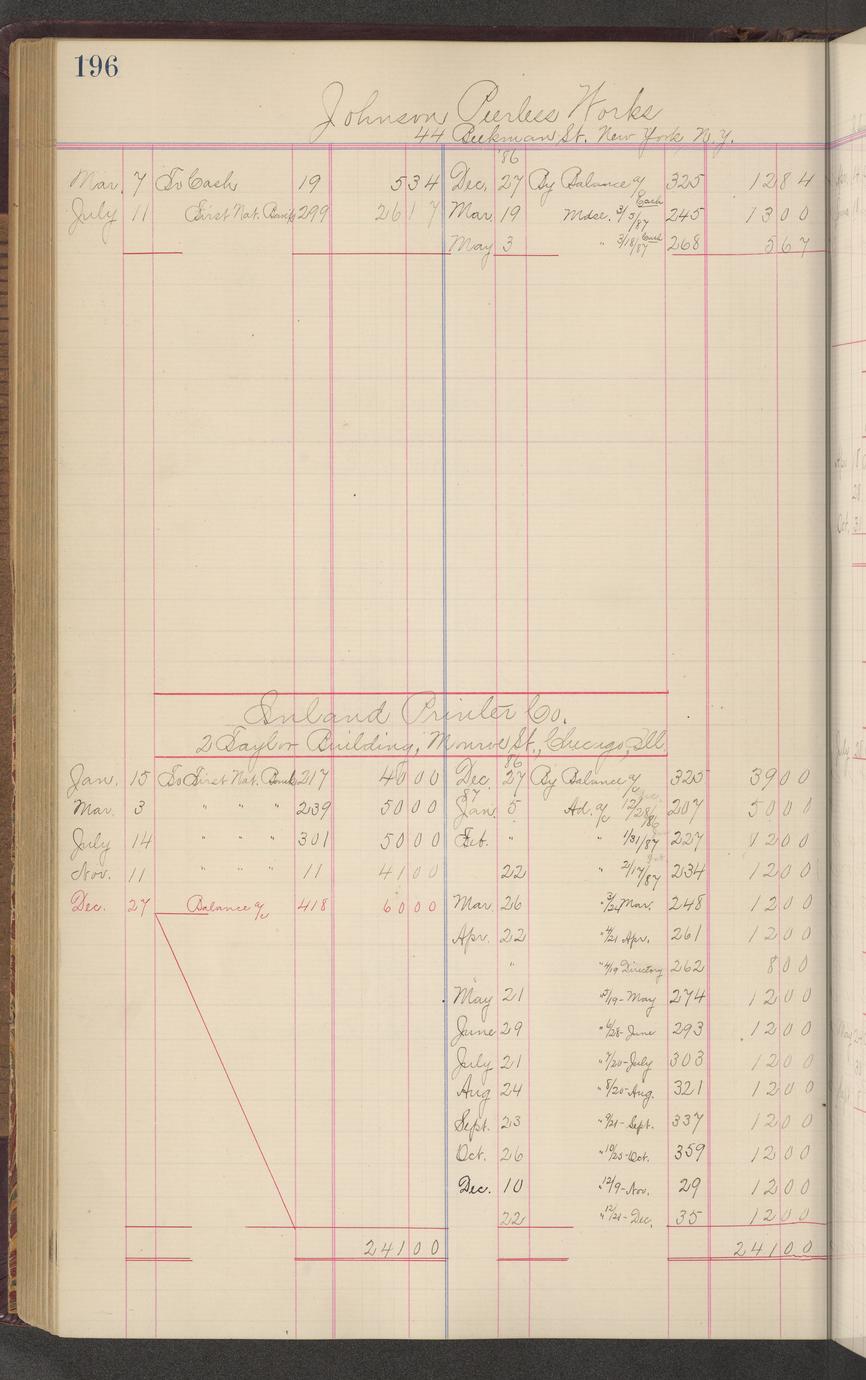 196
Johnson Peerless Works
44 Beekman St. New York N.Y.
'86
Mar. 7 To Cash 19 534 Dec. 27 By Balance a/c 325 1284
July 11 First Nat. Bank 299 2617 Mar. 19 Mdse. 3/5/87 Cash 245 1300
May 3 " 3/18/87 Cash 268 567
Inland Printer Co.
2 Taylor Building, Monroe St., Chicago, Ill
86
Jan. 15 To First Nat. Bank 217 4000 Dec. 27 By Balance a/c 325 3900
87
Mar. 3 " " " 239 5000 Jan. 5 Ad. a/c 12/28/86 207 5000
July 14 " " " 301 5000 Feb. " " 1/31/87 227 1200
Nov. 11 " " " 11 4100 22 " 2/17/87 234 1200
Dec. 27 Balance a/c 418 6000 Mar. 26 " 3/24 Mar. 248 1200
Apr. 22 " 4/21 Apr. 261 1200
" " 4/19 Directory 262 800
May 21 " 5/19 - May 274 1200
June 29 " 6/28 - June 293 1200
July 21 " 7/20 - July 303 1200
Aug 24 " 8/20 - Aug. 321 1200
Sept. 23 " 9/21 - Sept. 337 1200
Oct. 26 " 10/25 - Oct. 359 1200
Dec. 10 " 12/9 - Nov. 29 1200
22 " 12/21 - Dec. 35 1200
24100 24100